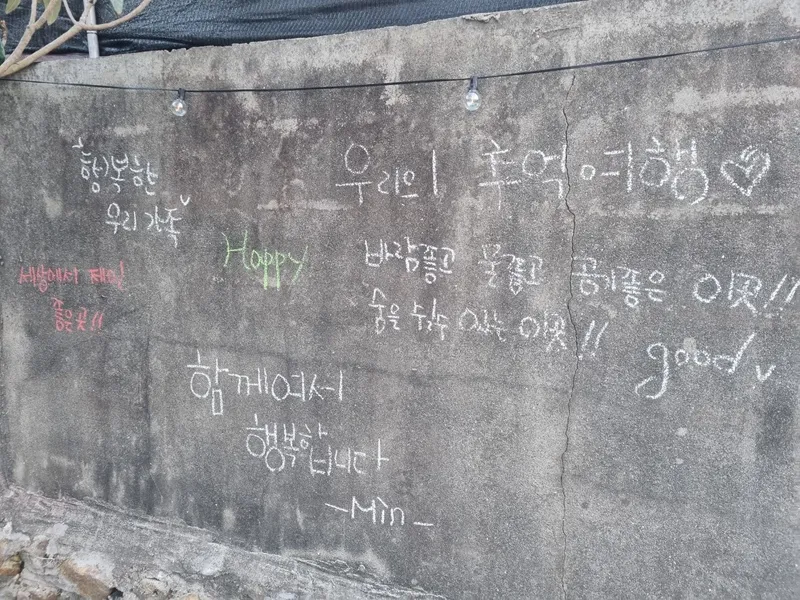 행복한
우리가족
우리의 추억여행
Happy
바람좋고 물좋고 공기좋은 이곳!!
숨을 쉴수 있는 이곳!!
good
세상에서 제일
좋은곳!!
함께여서
행복합니다
-Min-